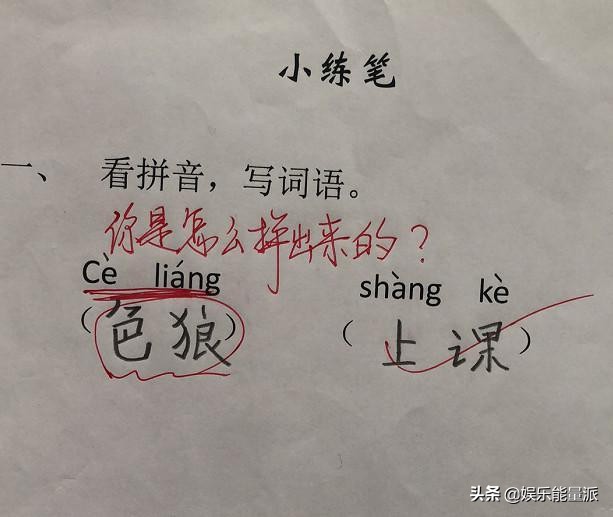 小练笔
一、 看拼音，写词语。
你是怎么拼出来的？
Cè liáng shàng kè
（色狼） （上课）
头条 @娱乐能量派